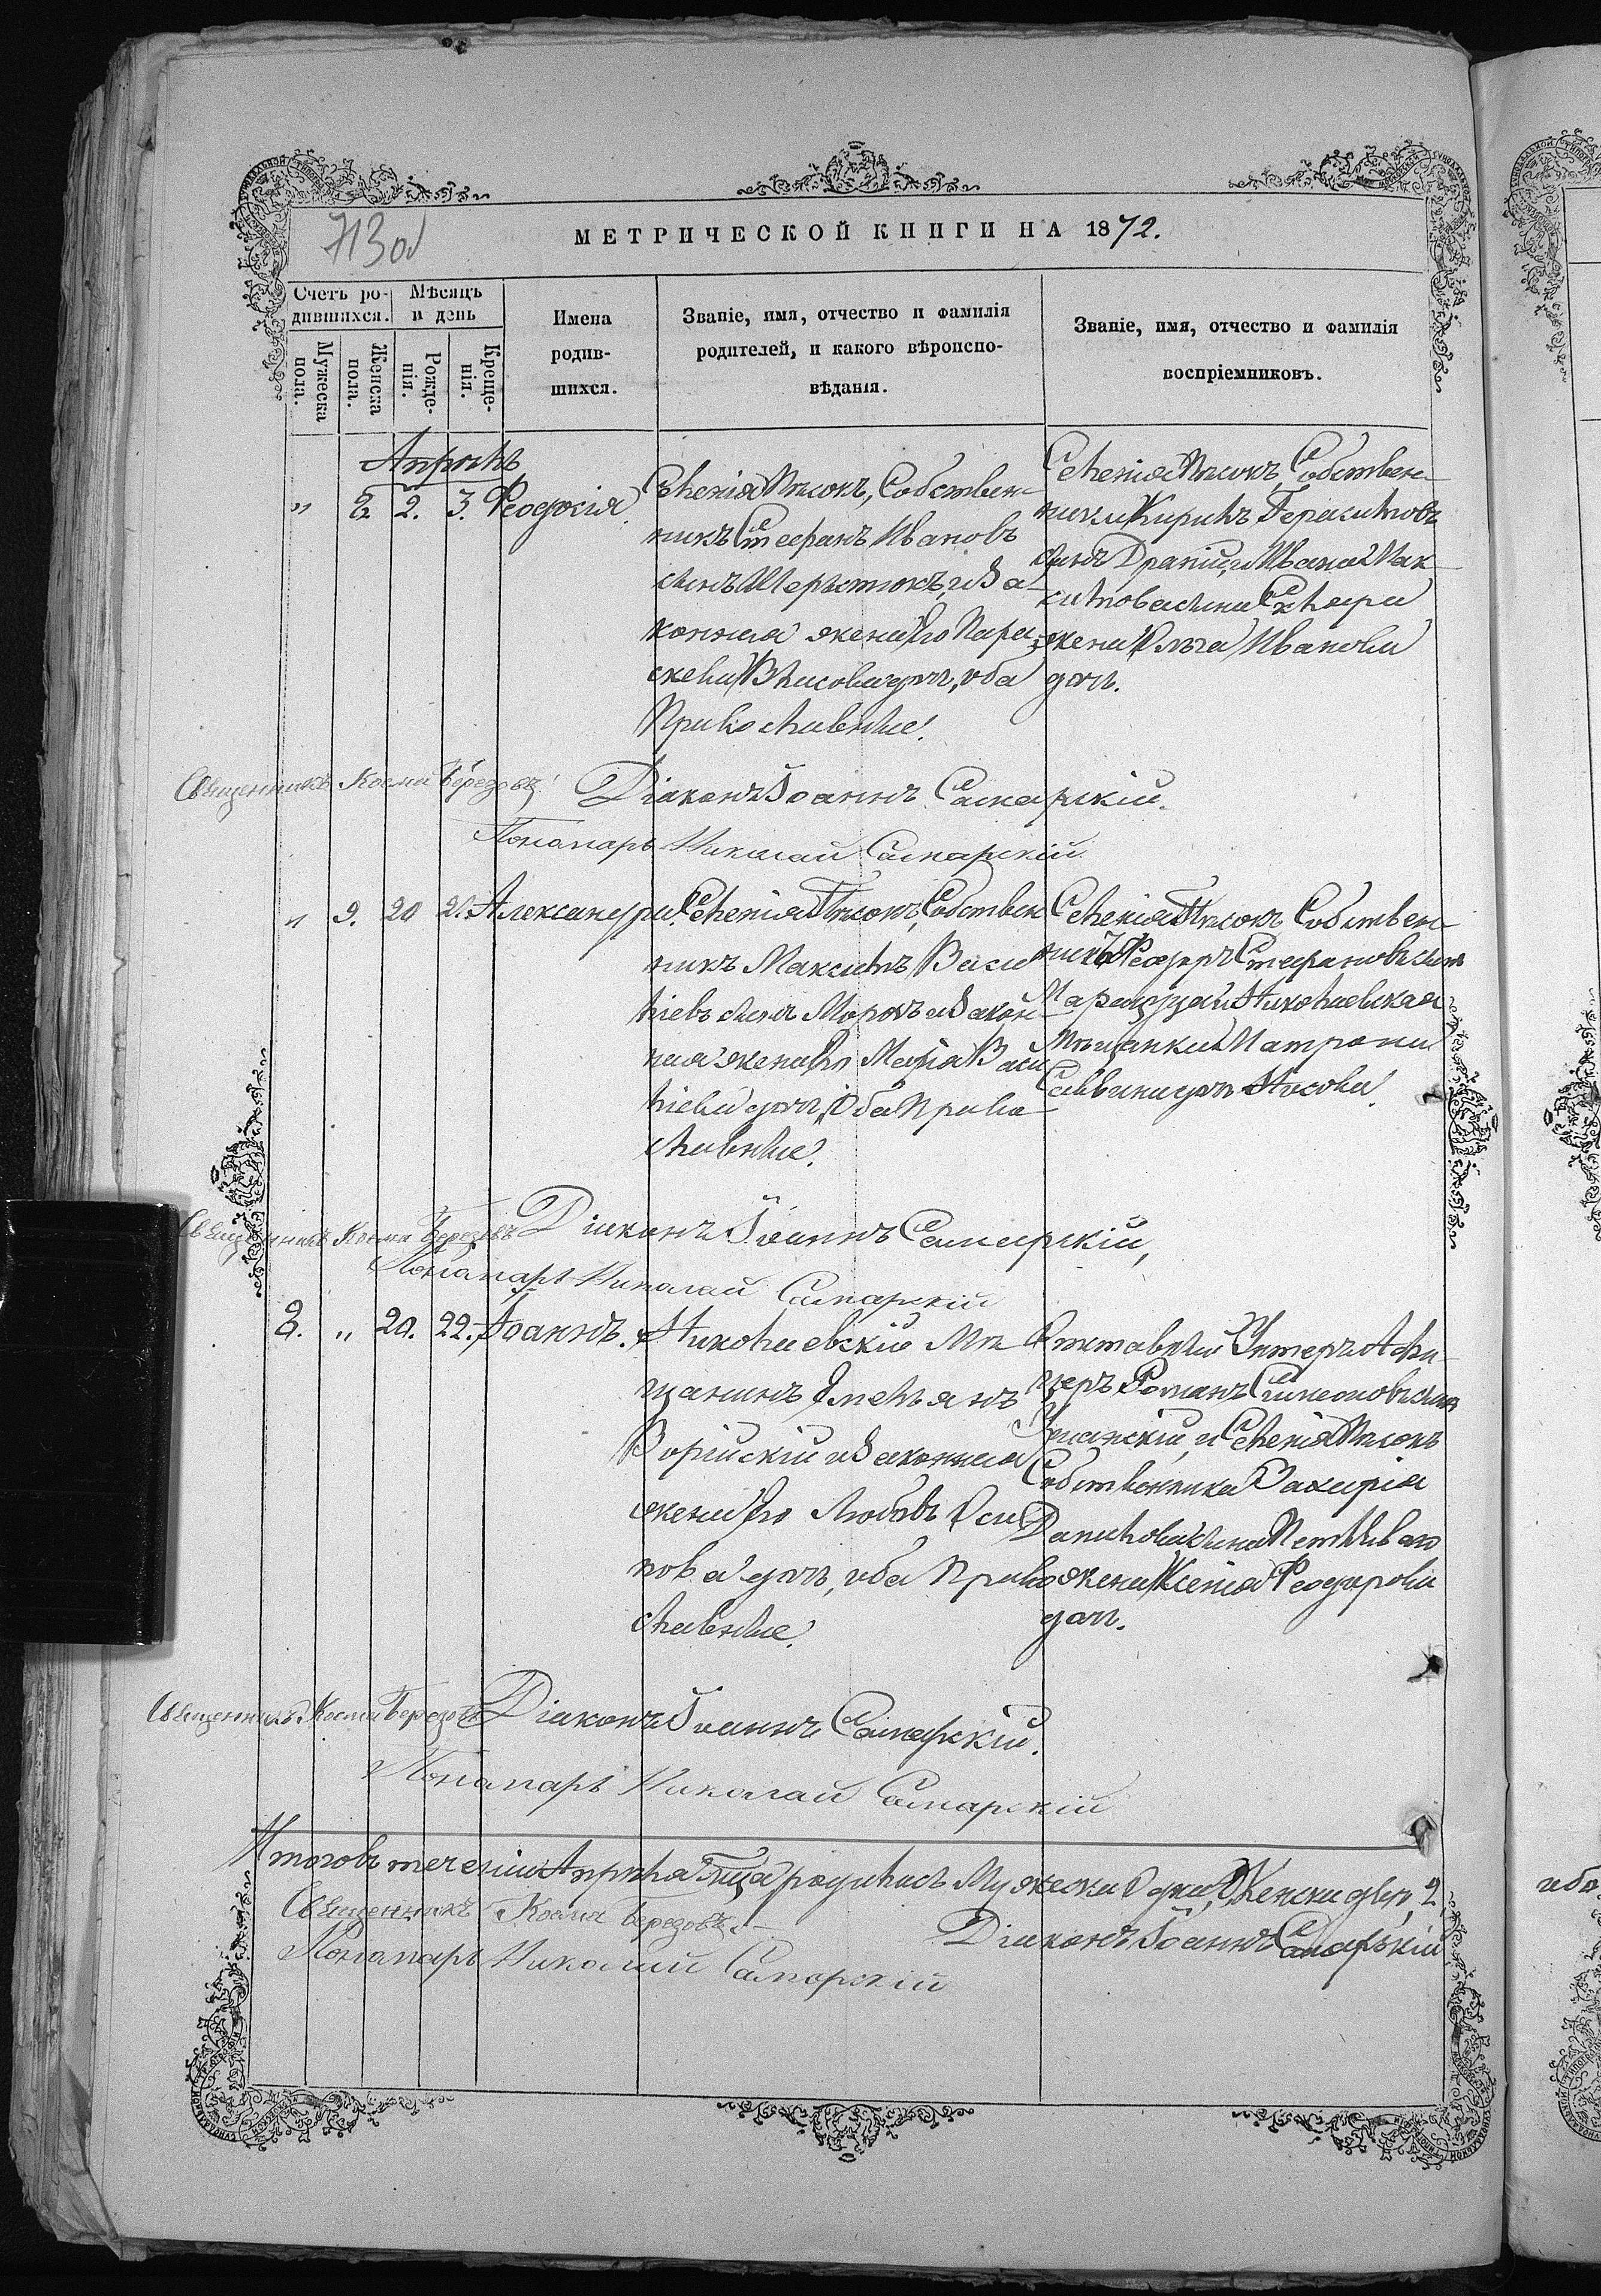 713 об
МЕТРИЧЕСКОЙ КНИГИ НА 1872.
Счетъ ро-
дившихся.
Мѣсяцъ
и день
Мужеска
пола.
Женска
пола.
Рожде-
нія.
Креще-
нія.
Имена
родив-
шихся.
Званіе, имя, отчество и фамилія
родителей, и какого вѣроиспо-
вѣданія.
Званіе, имя, отчество и фамилія
воспріемниковъ.
Апрѣль
" 8. 2. 3. Феодосія.
Селенія Пѣсокъ, Собствен-
никъ Стефанъ Ивановъ
сынъ Шерстюкъ, и За-
конная жена его Пара-
скева Власова дочь, оба
Православные.
Селенія Пѣсокъ Собствен-
никъ Кирилъ Герасимовъ
сынъ Драній, и Ивана Мак-
симова сына жена Ольга Иванова
дочь.
Священникъ Косма Березовъ
Діаконъ Іоаннъ Самарскій.
Пономарь Николай Самарскій
" 9. 20 21. Александра.
Селенія Пѣсокъ, Собствен
никъ Максимъ Васи
ліевъ сынъ Морозъ и Закон-
ная жена его Марія Васи
ліева дочь, Оба Право-
славные.
Селенія Пѣсокъ Собствен-
никъ Феодоръ Стефановъ сынъ
и Николаевская
мѣщанка Матрона
Саввина дочь Лисова.
Священникъ Косма Березовъ
Діаконъ Іоаннъ Самарскій,
Пономарь Николай Самарскій
8. " 20. 22. Іоаннъ.
Николаевскій Мѣ
щанинъ Емельянъ
и Законная
жена его Любовь Оси
пова дочь, оба Право
славные.
Отставный Унтеръ Афи-
церъ Романъ Симеоновъ сынъ
Уманскій, и Селенія Пѣсокъ
Собственника Захарія
Данилова сына
жена Ксенія Феодорова
дочь.
Священникъ Косма Березовъ
Діаконъ Іоаннъ Самарскій.
Пономарь Николай Самарскій
Итого въ теченіи Апрѣля М-ца родилось Мужеска Одинъ, Женска двѣ, 2,
Священникъ Косма Березовъ.
Діаконъ Іоаннъ Самарскій
Пономарь Николай Самарскій